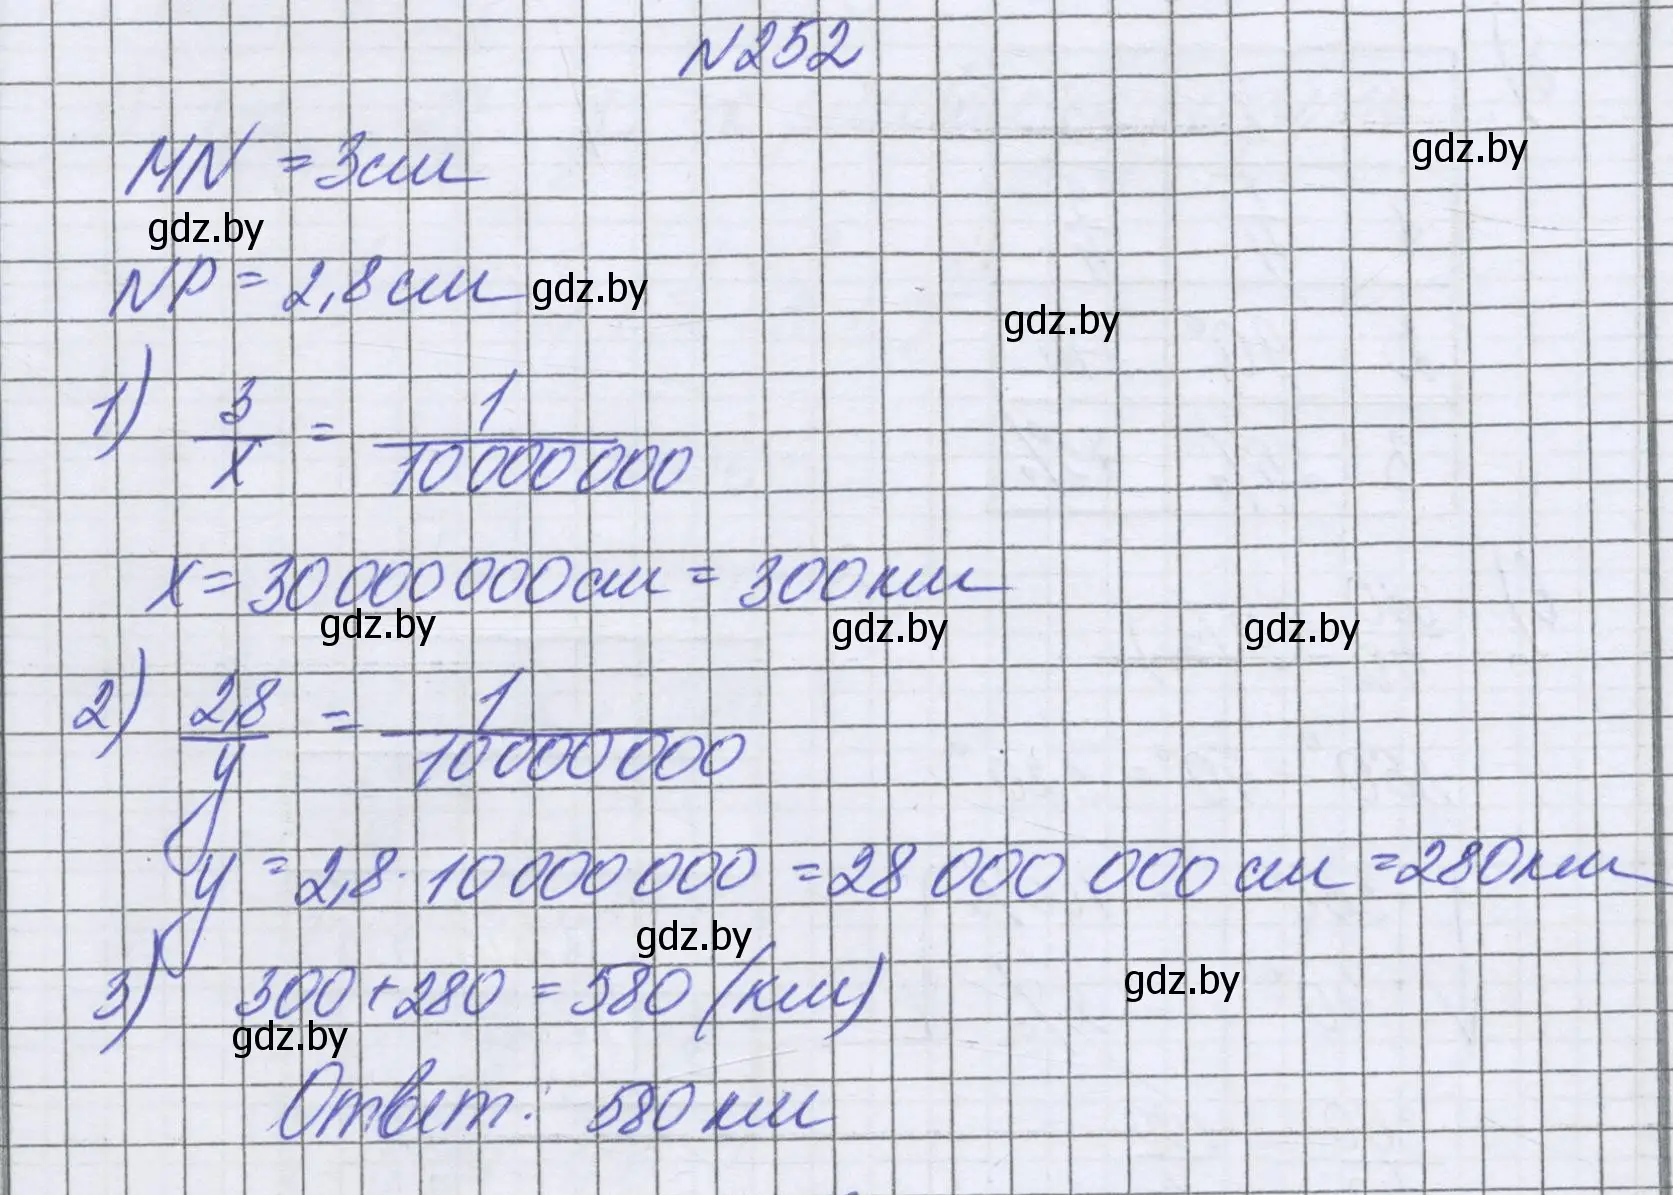 N252
MN = 3см
gdz.by
gdz.by
NP = 2,8см gdz.by
gdz.by
1) 3/x = 1/10 000 000
x = 30 000 000 см = 300 км
gdz.by gdz.by gdz.by
2) 2,8/y = 1/10 000 000
y = 2,8 · 10 000 000 = 28 000 000 см = 280 км
gdz.by
3) 300 + 280 = 580 (км)
gdz.by
gdz.by
Ответ: 580 км